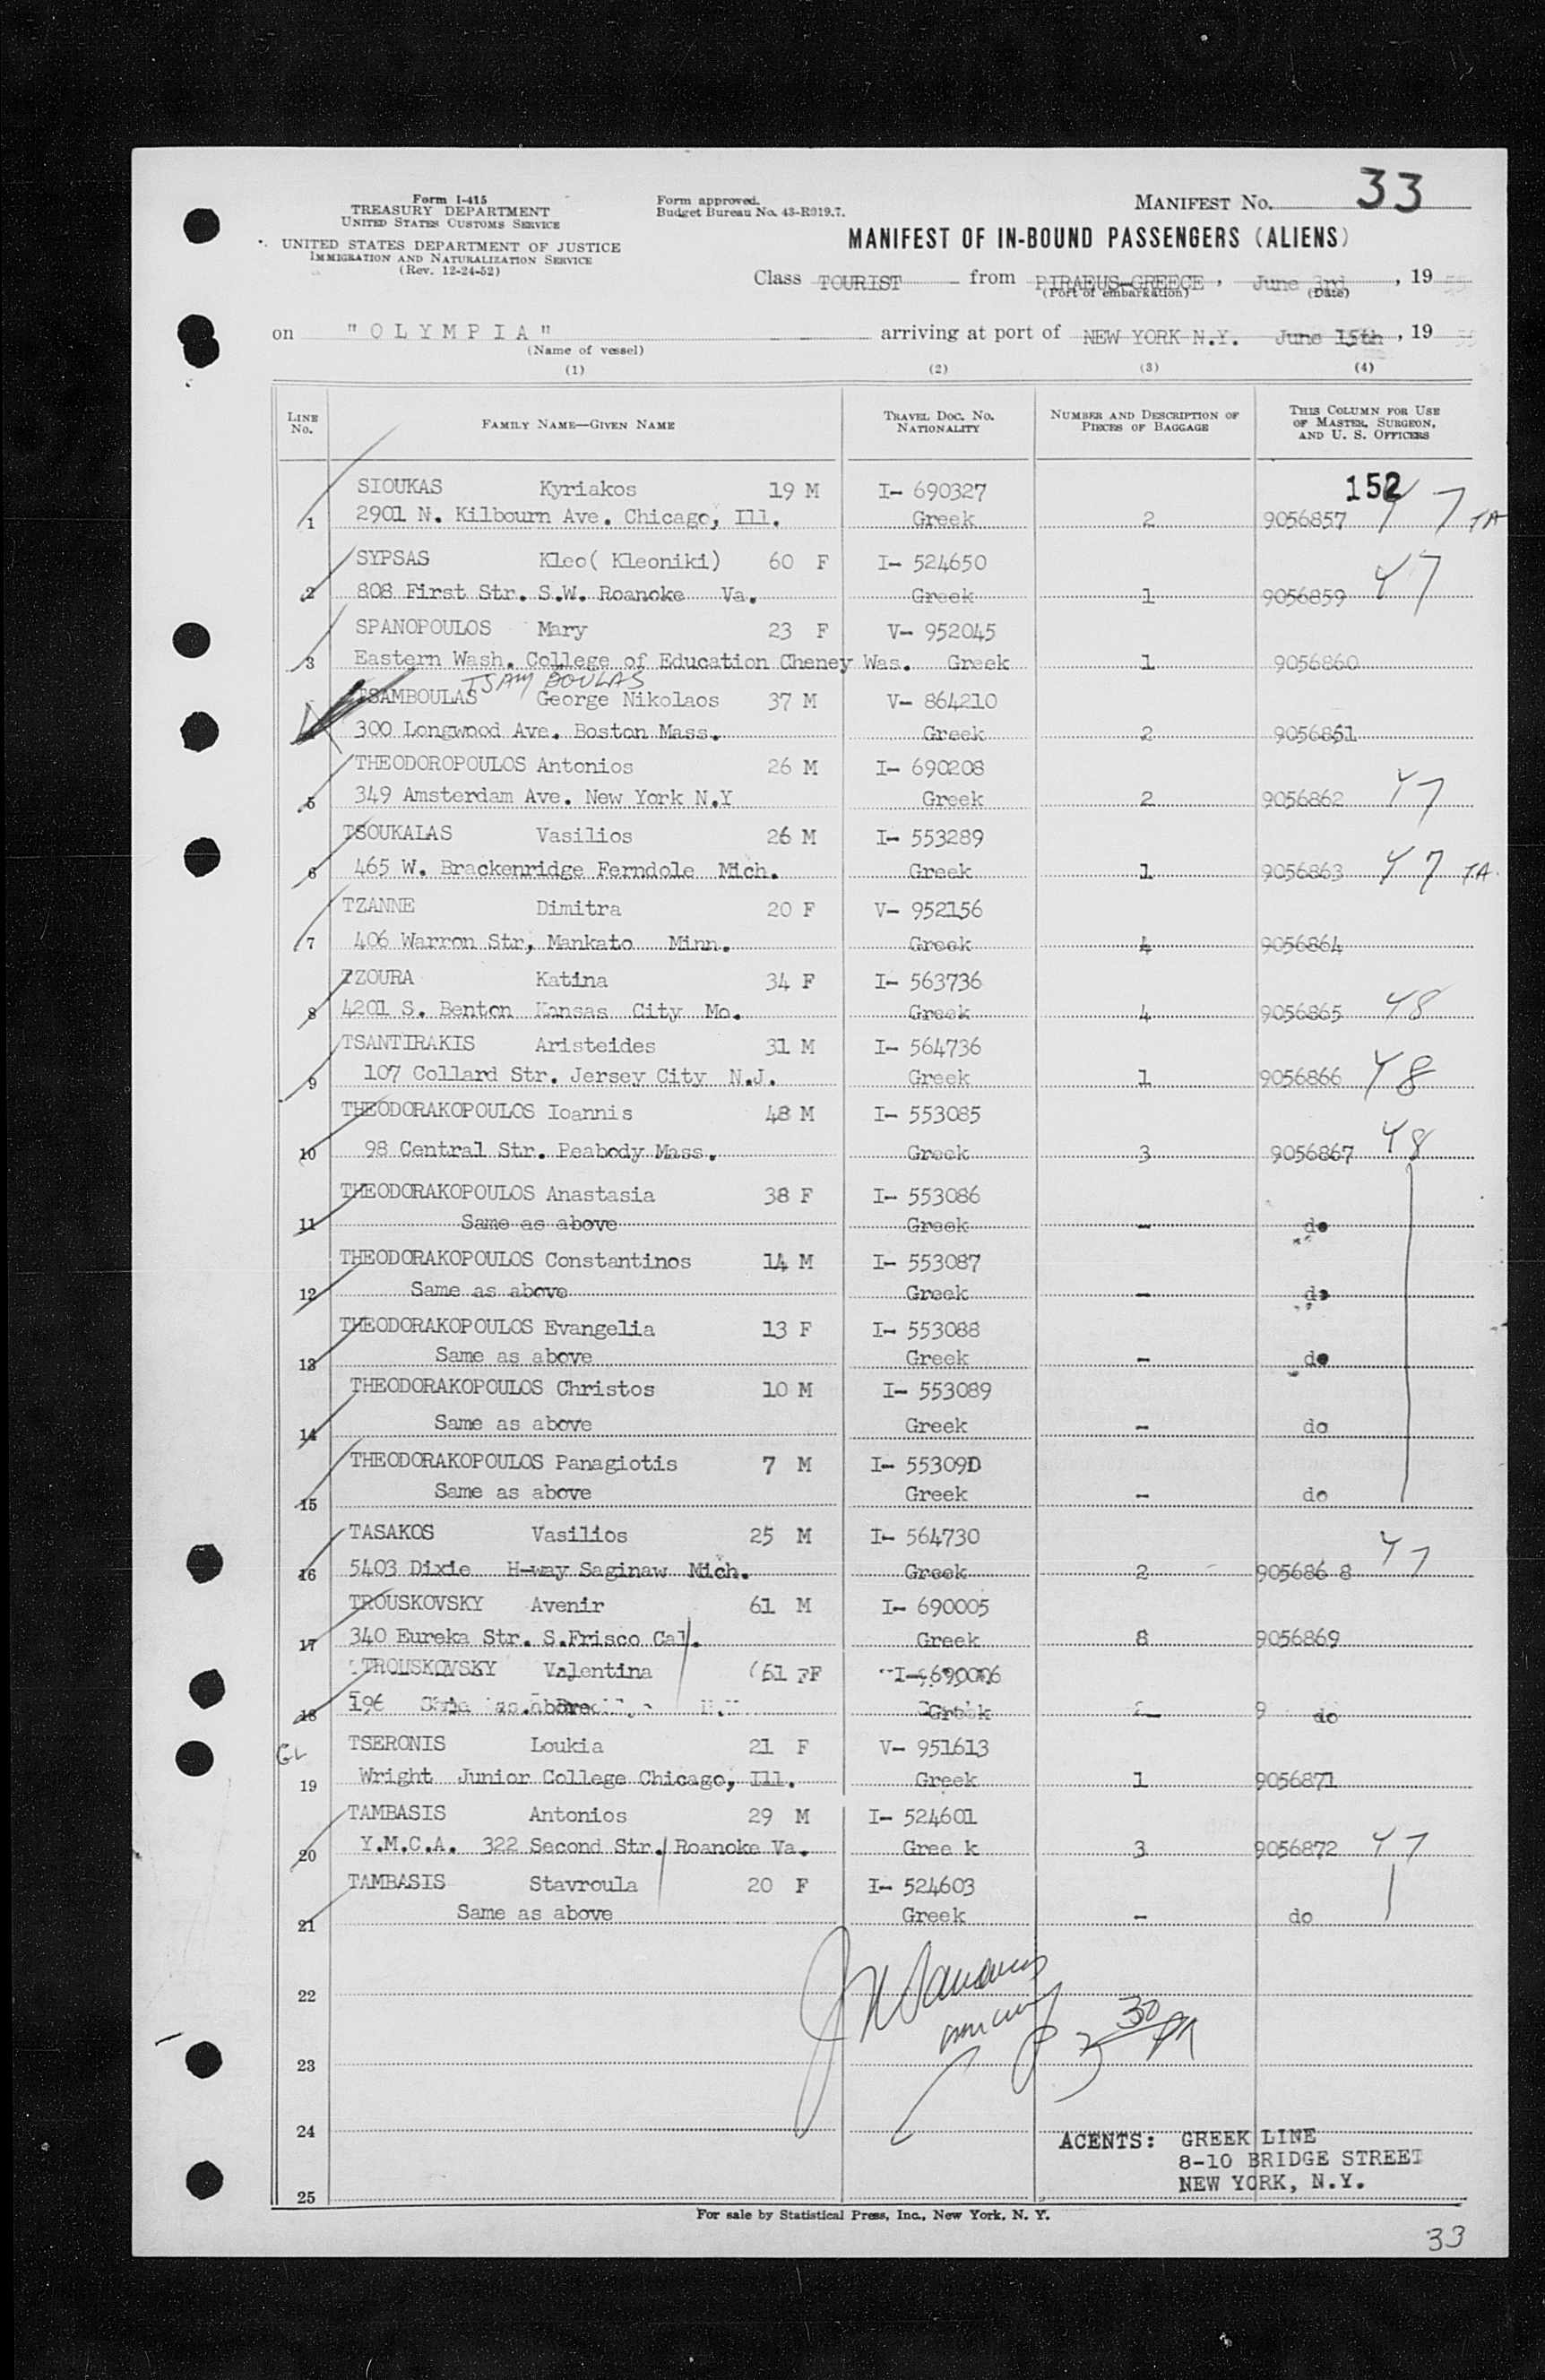 33
Form I-415
TREASURY DEPARTMENT
UNITED STATES CUSTOMS SERVICE
UNITED STATES DEPARTMENT OF JUSTICE
IMMIGRATION AND NATURALIZATION SERVICE
(Rev. 12-24-52)
Form approved.
Budget Bureau No. 43-R019.7.
MANIFEST No.
MANIFEST OF IN-BOUND PASSENGERS (ALIENS)
Class TOURIST from PIRAEUS-GREECE, June 3rd, 19 55
(Port of embarkation) (Date)
on "OLYMPIA" arriving at port of NEW YORK N.Y. June 15th, 19 55
(Name of vessel)
(1) (2) (3) (4)
LINE No. FAMILY NAME—GIVEN NAME TRAVEL DOC. NO. NATIONALITY NUMBER AND DESCRIPTION OF PIECES OF BAGGAGE THIS COLUMN FOR USE OF MASTER, SURGEON, AND U. S. OFFICERS
SIOUKAS Kyriakos 19 M I- 690327 152
1 2901 N. Kilbourn Ave. Chicago, Ill. Greek 2 9056857 Y 7 TA
SYPSAS Kleo( Kleoniki) 60 F I- 524650
2 808 First Str. S.W. Roanoke Va. Greek 1 9056859 Y7
SPANOPOULOS Mary 23 F V- 952045
3 Eastern Wash. College of Education Cheney Was. Greek 1 9056860
TSAMBOULAS
TSAMBOULAS George Nikolaos 37 M V- 864210
300 Longwood Ave. Boston Mass. Greek 2 9056861
THEODOROPOULOS Antonios 26 M I- 690208
5 349 Amsterdam Ave. New York N.Y Greek 2 9056862 Y7
TSOUKALAS Vasilios 26 M I- 553289
6 465 W. Brackenridge Ferndole Mich. Greek 1 9056863 Y 7 TA
TZANNE Dimitra 20 F V- 952156
7 406 Warron Str, Mankato Minn. Greek 4 9056864
TZOURA Katina 34 F I- 563736
8 4201 S. Benton Kansas City Mo. Greek 4 9056865 Y8
TSANTIRAKIS Aristeides 31 M I- 564736
9 107 Collard Str. Jersey City N.J. Greek 1 9056866 Y8
THEODORAKOPOULOS Ioannis 48 M I- 553085
10 98 Central Str. Peabody Mass. Greek 3 9056867 Y8
THEODORAKOPOULOS Anastasia 38 F I- 553086
11 Same as above Greek - do
THEODORAKOPOULOS Constantinos 14 M I- 553087
12 Same as above Greek - do
THEODORAKOPOULOS Evangelia 13 F I- 553088
13 Same as above Greek - do
THEODORAKOPOULOS Christos 10 M I- 553089
14 Same as above Greek - do
THEODORAKOPOULOS Panagiotis 7 M I- 55309D
15 Same as above Greek - do
TASAKOS Vasilios 25 M I- 564730
16 5403 Dixie H-way Saginaw Mich. Greek 2 905686 8 Y7
TROUSKOVSKY Avenir 61 M I- 690005
17 340 Eureka Str. S.Frisco Cal. Greek 8 9056869
TROUSKOVSKY Valentina 61 F I- 690006
18 Same as above Greek - do
GL TSERONIS Loukia 21 F V- 951613
19 Wright Junior College Chicago, Ill. Greek 1 9056871
TAMBASIS Antonios 29 M I- 524601
20 Y.M.C.A. 322 Second Str. Roanoke Va. Gree k 3 9056872 Y7
TAMBASIS Stavroula 20 F I- 524603
21 Same as above Greek - do
22
3 30 PM
23
24
ACENTS: GREEK LINE
8-10 BRIDGE STREET
NEW YORK, N.Y.
25
For sale by Statistical Press, Inc., New York, N. Y.
33